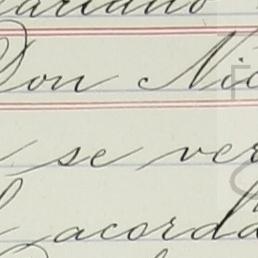 ariano
Don Nic
se ver
acorda